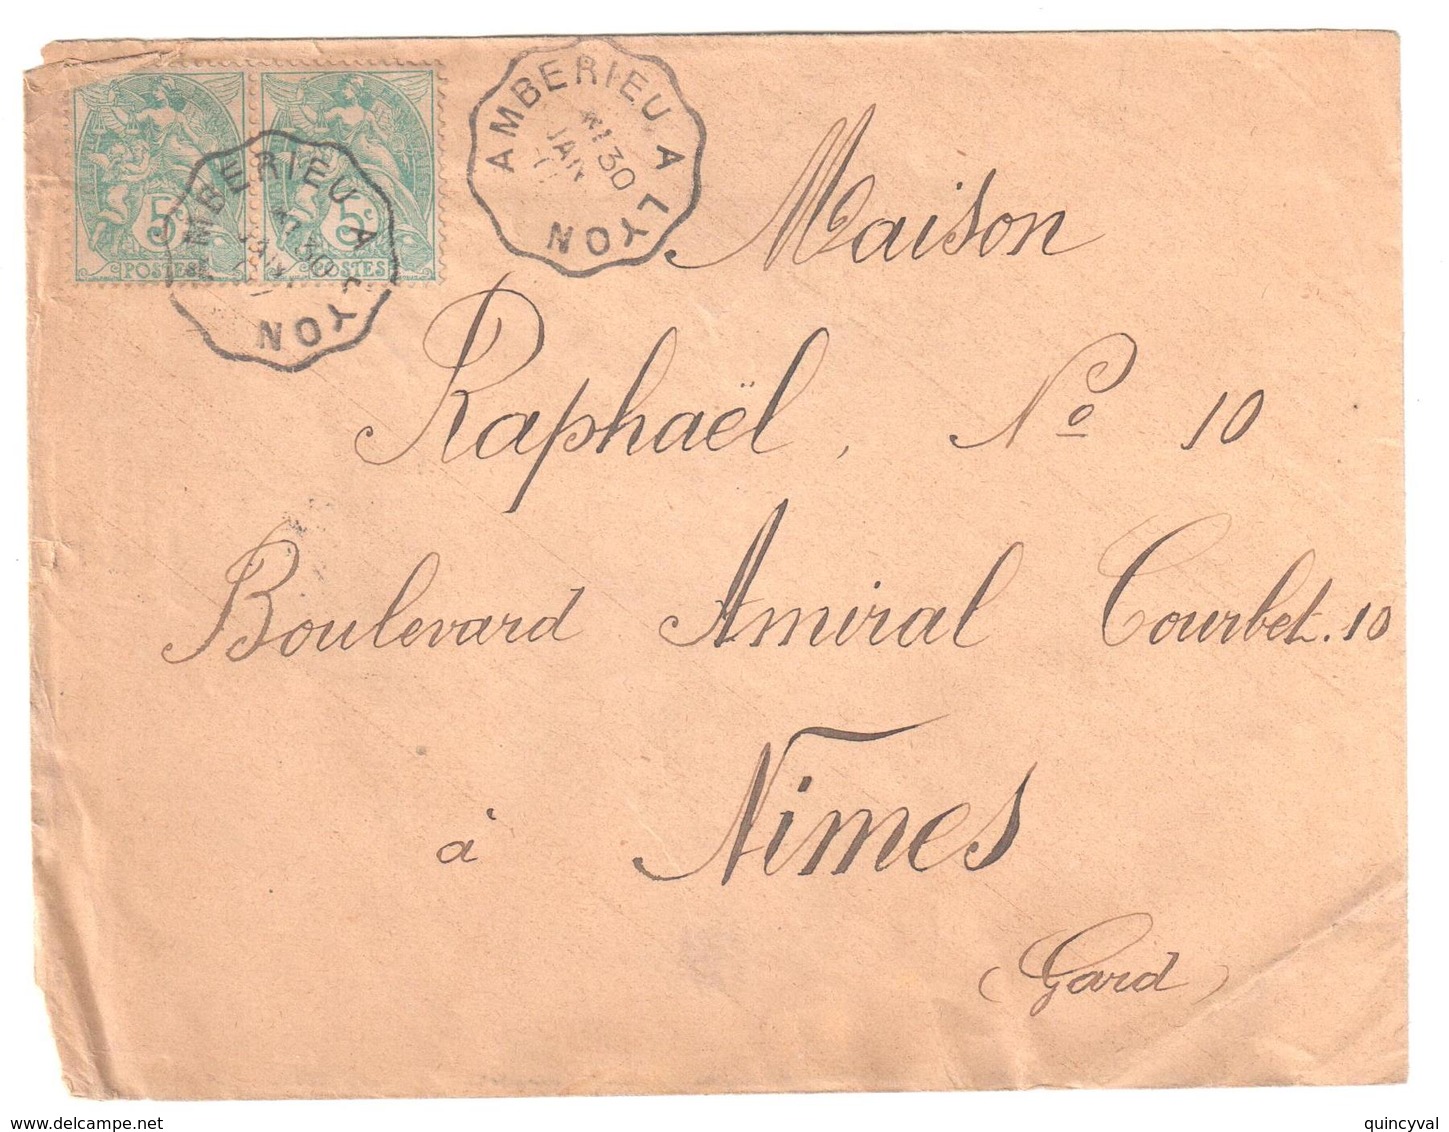 5c
POSTES
5c
POSTES
AMBERIEU A LYON
30
JAN
AMBERIEU A LYON
30
JAN
Maison
Raphaël, No 10
Boulevard Amiral Courbet. 10
à Nîmes
(Gard)
www.delcampe.net
quincyval